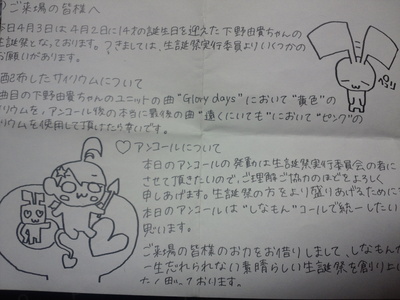 ご来場の皆様へ
本日4月3日は4月2日に14才の誕生日を迎えた下野由貴ちゃんの
生誕祭となっております。つきましては、生誕祭実行委員よりいくつかの
お願いがあります。
配布したサイリウムについて
曲目の下野由貴ちゃんのユニットの曲"Glory days"において"黄色"の
リウムを、アンコール後の本当に最後の曲"遠くにいても"において"ピンク"の
リウムを使用して頂けたら幸いです。
ぺろり
♡アンコールについて
本日のアンコールの発動は生誕祭実行委員会の者に
させて頂きたいので、ご理解ご協力のほどをよろしく
申しあげます。生誕祭の方をより盛りあげるために
本日のアンコールは"しなもん"コールで統一したい
思います。
ご来場の皆様のお力をお借りしまして、しなもんが
一生忘れられない素晴らしい生誕祭を創り上